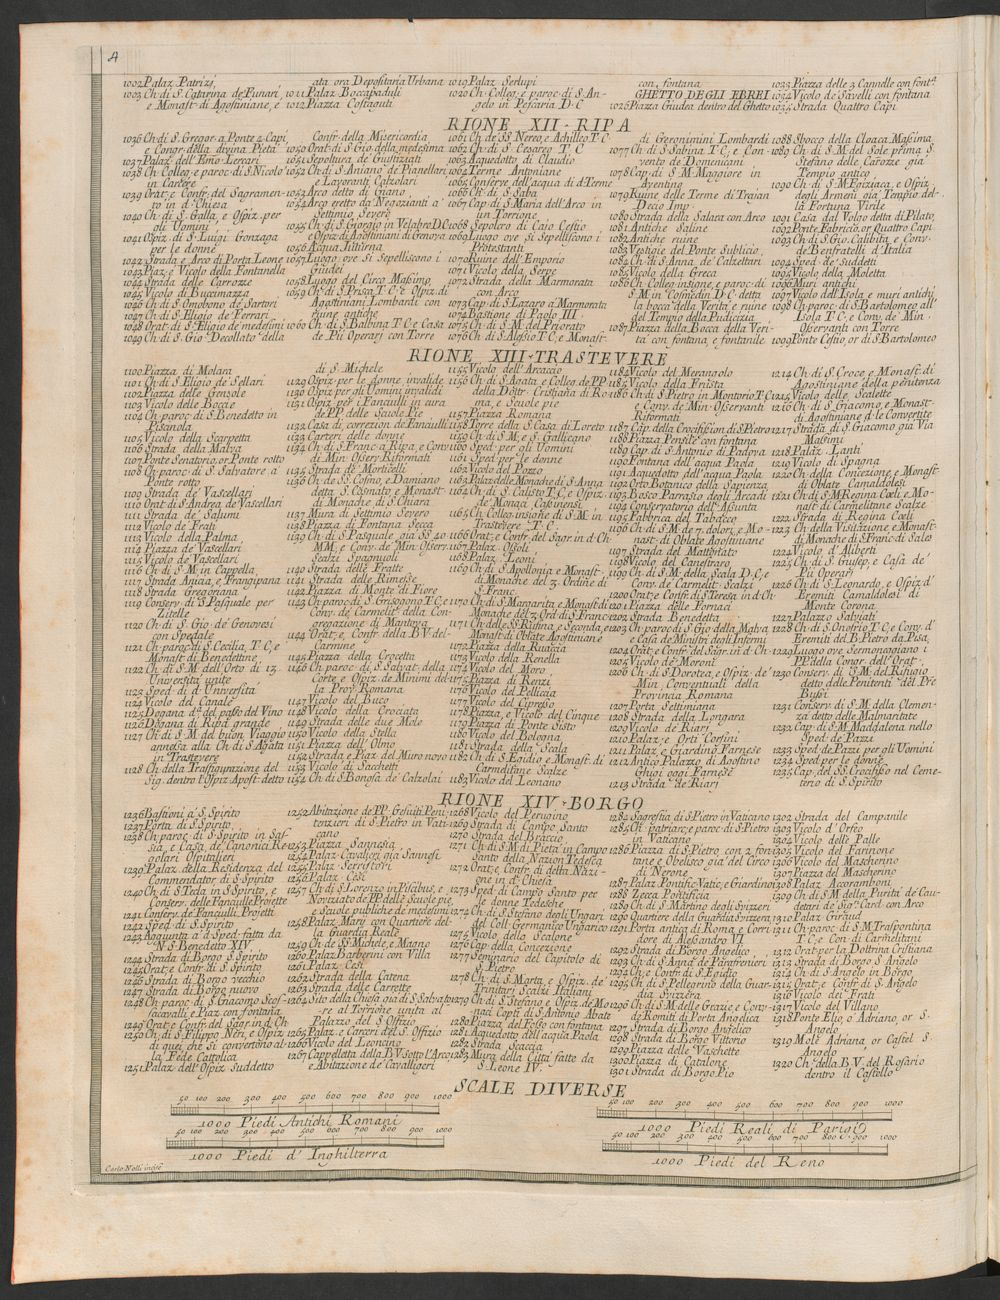 A
1002 Palaz. Patrizj
1003 Ch. di S. Catarina de' Funari,
e Monast. di Agostiniane, e
ata ora Depositaria Urbana
1011 Palaz. Boccapaduli
1012 Piazza Costaguti
1019 Palaz. Serlupi
1020 Ch. Colleg. e paroc. di S. An-
gelo in Pescaria D. C
con, fontana
GHETTO DEGLI EBREI
1026 Piazza Giudea dentro del Ghetto
1033 Piazza delle 3. Cannelle con font.ª
1034 Vicolo de' Savelli con fontana
1035 Strada Quattro Capi
RIONE XII - RIPA
1036 Ch. di S. Gregor. a Ponte 4. Capi,
e Congr. della divina Pietà
1037 Palaz. dell' Emo Lercari
1038 Ch. Colleg. e paroc. di S. Nicolo
in Carcere
1039 Orat. e Confr. del Sagramen-
to in d.ª Chiesa
1040 Ch. di S. Galla, e Ospiz. per
gli Uomini
1041 Ospiz. di S. Luigi Gonzaga
per le donne
1042 Strada e Arco di Porta Leone
1043 Piaz. e Vicolo della Fontanella
1044 Strada delle Carrozze
1045 Vicolo di Bucimazza
1046 Ch. di S. Omobono de' Sartori
1047 Ch. di S. Eligio de' Ferrari
1048 Orat. di S. Eligio de' medesimi
1049 Ch. di S. Gio. Decollato della
Confr. della Misericordia
1050 Orat. di S. Gio. della medesima
1051 Sepoltura de' Giustiziati
1052 Ch. di S. Aniano de' Pianellari,
e Lavoranti Calzolari
1053 Arco detto di Giano
1054 Arco eretto da Negozianti a'
Settimio Severo
1055 Ch. di S. Giorgio in Velabro D. C.
e Ospiz. di Agostiniani di Genova
1056 Acqua Juturna
1057 Luogo ove si Sepelliscono i
Giudei
1058 Luogo del Circo Massimo
1059 Ch. di S. Prisca T. C. e Ospiz. di
Agostiniani Lombardi con
ruine antiche
1060 Ch. di S. Balbina T. C. e Casa
de' Pii Operarj con Torre
1061 Ch. de' SS. Nereo, e Achilleo T. C
1062 Ch. di S. Cesareo T. C
1063 Aquedotto di Claudio
1064 Terme Antoniane
1065 Conserve dell' acqua di d. Terme
1066 Ch. di S. Saba
1067 Cap. di S. Maria dell' Arco in
un Torrione
1068 Sepolcro di Caio Cestio
1069 Luogo ove si Sepelliscono i
Protestanti
1070 Ruine dell' Emporio
1071 Vicolo della Serpe
1072 Strada della Marmorata
con Arco
1073 Cap. di S. Lazaro a' Marmorata
1074 Bastione di Paolo III.
1075 Ch. di S. M. del Priorato
1076 Ch. di S. Alessio T. C. e Monast.
di Geronimini Lombardi
1077 Ch. di S. Sabina T. C. e Con-
vento de' Domenicani
1078 Cap. di S. M. Maggiore in
Aventino
1079 Ruine delle Terme di Trajan
Decio Imp.
1080 Strada della Salara con Arco
1081 Antiche Saline
1082 Antiche ruine
1083 Vestigie del Ponte Sublicio
1084 Ch. di S. Anna de' Calzettari
1085 Vicolo della Greca
1086 Ch. Colleg. insigne, e paroc. di
S. M. in Cosmedin D. C. detta
la bocca della Verità e ruine
del Tempio della Pudicizia
1087 Piazza della Bocca della Veri-
tà con fontana, e fontanile
1088 Sbocco della Cloaca Massima
1089 Ch. di S. M. del Sole prima S.
Stefano delle Carozze già
Tempio antico
1090 Ch. di S. M. Egiziaca, e Ospiz.
degli Armeni già Tempio del-
la Fortuna Virile
1091 Casa dal Volgo detta di Pilato
1092 Ponte Fabricio, or Quattro Capi
1093 Ch. di S. Gio. Calibita, e Conv.
de' Benfratelli d' Italia
1094 Sped. de' Suddetti
1095 Vicolo della Moletta
1096 Muri antichi
1097 Vicolo dell' Isola e muri antichi
1098 Ch. paroc. di S. Bartolomeo all'
Isola T. C. e Conv. de' Min.
Osservanti con Torre
1099 Ponte Cestio, or di S. Bartolomeo
RIONE XIII - TRASTEVERE
1100 Piazza di Molara
1101 Ch. di S. Eligio de' Sellari
1102 Piazza delle Gensole
1103 Vicolo delle Boccie
1104 Ch. paroc. di S. Benedetto in
Piscinola
1105 Vicolo della Scarpetta
1106 Strada della Malva
1107 Ponte Senatorio, or Ponte rotto
1108 Ch. paroc. di S. Salvatore a'
Ponte rotto
1109 Strada de' Vascellari
1110 Orat. di S. Andrea de' Vascellari
1111 Strada de' Salumi
1112 Vicolo de' Frati
1113 Vicolo della Palma
1114 Piazza de' Vascellari
1115 Vicolo de' Vascellari
1116 Ch. di S. M. in Cappella
1117 Strada Anicia, e Frangipana
1118 Strada Gregoriana
1119 Conserv. di S. Pasquale per
Zitelle
1120 Ch. di S. Gio. de' Genovesi
con Spedale
1121 Ch. paroc. di S. Cecilia, T. C. e
Monast. di Benedettine
1122 Ch. di S. M. dell' Orto di 13.
Università unite
1123 Sped. di d. Università
1124 Vicolo del Canale
1125 Dogana d.ª del passo del Vino
1126 Dogana di Ripa grande
1127 Ch. di S. M. del buon Viaggio
annessa alla Ch. di S. Agata
in Trastevere
1128 Ch. della Trasfigurazione del
Sig. dentro l' Ospiz. Apost. detto
di S. Michele
1129 Ospiz. per le donne invalide
1130 Ospiz. per gli Uomini invalidi
1131 Ospiz. per i Fanciulli in cura
de' PP. delle Scuole Pie
1132 Casa di correzion de' Fanciulli
1133 Carceri delle donne
1134 Ch. di S. Franc. a Ripa, e Conv.
di Min. Osserv. Riformati
1135 Strada de' Morticelli
1136 Ch. de' SS. Cosimo, e Damiano
detta S. Cosmato e Monast.
di Monache di S. Chiara
1137 Mura di Settimio Severo
1138 Piazza di Fontana Secca
1139 Ch. di S. Pasquale, già SS. 40.
MM. e Conv. de' Min. Osserv.
Scalzi Spagnuoli
1140 Strada delle Fratte
1141 Strada delle Rimesse
1142 Piazza di Monte di Fiore
1143 Ch. paroc. di S. Grisogono T. C. e
Conv. de' Carmelit. della Con-
gregazione di Mantova
1144 Orat. e Confr. della B. V. del
Carmine
1145 Piazza della Crocetta
1146 Ch. paroc. di S. Salvat. della
Corte, e Ospiz. de' Minimi del-
la Prov. Romana
1147 Vicolo del Buco
1148 Vicolo della Crociata
1149 Strada delle due Mole
1150 Vicolo della Stella
1151 Piazza dell' Olmo
1152 Strada e Piaz. del Muro novo
1153 Vicolo di Sacchetti
1154 Ch. di S. Bonosa de' Calzolai
1155 Vicolo dell' Arcaccio
1156 Ch. di S. Agata e Colleg. de' PP.
della Dottr. Cristiana di Ro-
ma, e Scuole pie
1157 Piazza Romana
1158 Torre della S. Casa di Loreto
1159 Ch. di S. M. e S. Gallicano
1160 Sped. per gli Uomini
1161 Sped. per le donne
1162 Vicolo del Pozzo
1163 Palaz. delle Monache di S. Anna
1164 Ch. di S. Calisto T. C. e Ospiz.
de' Monaci Casinensi
1165 Ch. Colleg. insigne di S. M. in
Trastevere T. C.
1166 Orat. e Confr. del Sagr. in d. Ch.
1167 Palaz. Ossoli
1168 Palaz. Leoni
1169 Ch. di S. Apollonia e Monast.
di Monache del 3. Ordine di
S. Franc.
1170 Ch. di S. Margarita, e Monast. di
Monache del 3. Ord. di S. Franc.
1171 Ch. delle SS. Rufina, e Seconda, e
Monast. di Oblate Agostiniane
1172 Piazza della Ruaccia
1173 Vicolo della Renella
1174 Vicolo del Moro
1175 Piazza di Renzi
1176 Vicolo del Pellicia
1177 Vicolo del Cipresso
1178 Piazza, e Vicolo del Cinque
1179 Piazza di Ponte Sisto
1180 Vicolo del Bologna
1181 Strada della Scala
1182 Ch. di S. Egidio e Monast. di
Carmelitane Scalze
1183 Vicolo del Leoncino
1184 Vicolo del Merangolo
1185 Vicolo della Frusta
1186 Ch. di S. Pietro in Montorio T. C.
e Conv. de' Min. Osservanti
Riformati
1187 Cap. della Crocifission di S. Pietro
1188 Piazza Pensile con fontana
1189 Cap. di S. Antonio di Padova
1190 Fontana dell' acqua Paola
1191 Aquedotto dell' acqua Paola
1192 Orto Botanico della Sapienza
1193 Bosco Parrasio degli Arcadi
1194 Conservatorio dell' Assunta
1195 Fabbrica del Tabacco
1196 Ch. di S. M. de' 7. dolori, e Mo-
nast. di Oblate Agostiniane
1197 Strada del Mattonato
1198 Vicolo del Canestraro
1199 Ch. di S. M. della Scala D. C. e
Conv. de' Carmelit. Scalzi
1200 Orat. e Confr. di S. Teresa in d. Ch.
1201 Piazza delle Fornaci
1202 Strada Benedetta
1203 Ch. paroc. di S. Gio. della Malva
e Casa de' Ministri degli Infermi
1204 Orat. e Confr. del Sagr. in d. Ch.
1205 Vicolo de' Moroni
1206 Ch. di S. Dorotea, e Ospiz. de'
Min. Conventuali della
Provincia Romana
1207 Porta Settimiana
1208 Strada della Longara
1209 Vicolo de' Riarj
1210 Palaz. e Orti Corsini
1211 Palaz. e Giardino Farnese
1212 Antico Palazzo di Agostino
Ghigi oggi Farnese
1213 Strada de' Riarj
1214 Ch. di S. Croce, e Monast. di
Agostiniane della penitenza
1215 Vicolo delle Scalette
1216 Ch. di S. Giacomo, e Monast.
di Agostiniane d.e le Convertite
1217 Strada di S. Giacomo già Via
Massimi
1218 Palaz. Lanti
1219 Vicolo di Spagna
1220 Ch. della Concezione, e Monast.
di Oblate Camaldolesi
1221 Ch. di S. M. Regina Cœli, e Mo-
nast. di Carmelitane Scalze
1222 Strada di Regina Cœli
1223 Ch. della Visitazione, e Monast.
di Monache di S. Franc. di Sales
1224 Vicolo d' Aliberti
1225 Ch. di S. Giusep. e Casa de'
Pii Operarj
1226 Ch. di S. Leonardo, e Ospiz. d'
Eremiti Camaldolesi di
Monte Corona
1227 Palazzo Salviati
1228 Ch. di S. Onofrio T. C. e Conv. d'
Eremiti del B. Pietro da Pisa
1229 Luogo ove Sermoneggiano i
PP. della Congr. dell' Orat.
1230 Conserv. di S. M. del Rifugio
detto delle Penitenti del P.re
Bussi
1231 Conserv. di S. M. della Clemen-
za detto delle Malmaritate
1232 Cap. di S. M. Maddalena nello
Sped. de' Pazzi
1233 Sped. de' Pazzi per gli Uomini
1234 Sped. per le donne
1235 Cap. del SS. Crocifisso nel Ceme-
terio di S. Spirito
RIONE XIV - BORGO
1236 Bastioni a' S. Spirito
1237 Porta di S. Spirito
1238 Ch. paroc. di S. Spirito in Sas-
sia, e Casa de' Canonici Re-
golari Ospitalieri
1239 Palaz. della Residenza del
Commendator di S. Spirito
1240 Ch. di S. Tecla in S. Spirito, e
Conserv. delle Fanciulle Projette
1241 Conserv. de' Fanciulli Projetti
1242 Sped. di S. Spirito
1243 Aggiunta a' d. Sped. fatta da
N. S. Benedetto XIV.
1244 Strada di Borgo S. Spirito
1245 Orat. e Confr. di S. Spirito
1246 Strada di Borgo vecchio
1247 Strada di Borgo nuovo
1248 Ch. paroc. di S. Giacomo Scos-
sacavalli e Piaz. con fontana
1249 Orat. e Confr. del Sagr. in d. Ch.
1250 Ch. di S. Filippo Neri, e Ospiz.
di quei che si convertono al-
la Fede Cattolica
1251 Palaz. dell' Ospiz. Suddetto
1252 Abitazione de' PP. Gesuiti Peni-
tenzieri di S. Pietro in Vati-
cano
1253 Piazza Sannesia
1254 Palaz. Cavalieri già Sannesi
1255 Palaz. Serristori
1256 Palaz. Cesi
1257 Ch. di S. Lorenzo in Piscibus, e
Noviziato de' PP. delle Scuole pie,
e Scuole publiche de' medesimi
1258 Palaz. Marij con Quartiere del-
la Guardia Reale
1259 Ch. de' SS. Michele, e Magno
1260 Palaz. Barberini con Villa
1261 Palaz. Cesi
1262 Strada della Catena
1263 Strada delle Carrette
1264 Sito della Chiesa già di S. Salvato-
re al Torrione unita al
Palazzo del S. Offizio
1265 Palaz. e Carceri del S. Offizio
1266 Vicolo del Leoncino
1267 Cappelletta della B. V. sotto l' Arco
e Abitazione de' Cavalligeri
1268 Vicolo del Perugino
1269 Strada di Campo Santo
1270 Strada del Braccio
1271 Ch. di S. M. di Pietà in Campo
Santo della Nazion Tedesca
1272 Orat. e Confr. di detta Nazi-
one in d. Chiesa
1273 Sped. di Campo Santo per
le donne Tedesche
1274 Ch. di S. Stefano degli Ungari
del Coll. Germanico Ungarico
1275 Vicolo dello Scalone
1276 Cap. della Concezione
1277 Seminario del Capitolo di
S. Pietro
1278 Ch. di S. Marta, e Ospiz. de'
Trinitarj Scalzi Italiani
1279 Ch. di S. Stefano, e Ospiz. de' Mo-
naci Copti di S. Antonio Abate
1280 Piazza del Fosso con fontana
1281 Aquedotto dell' acqua Paola
1282 Strada Scaccia
1283 Mura della Città fatte da
S. Leone IV.
1284 Sagrestia di S. Pietro in Vaticano
1285 Ch. patriarc. e paroc. di S. Pietro
in Vaticano
1286 Piazza di S. Pietro, con 2. fon-
tane e Obelisco già del Circo
di Nerone
1287 Palaz. Pontific. Vatic. e Giardino
1288 Zecca Pontificia
1289 Ch. di S. Martino degli Svizzeri
1290 Quartiere della Guardia Svizzera
1291 Porta antica di Roma, e Corri-
dore di Alessandro VI.
1292 Strada di Borgo Angelico
1293 Ch. di S. Anna de' Parafrenieri
1294 Ch. e Confr. di S. Egidio
1295 Ch. di S. Pellegrino della Guar-
dia Svizzera
1296 Ch. di S. M. delle Grazie, e Conv.
de' Romiti di Porta Angelica
1297 Strada di Borgo Angelico
1298 Strada di Borgo Vittorio
1299 Piazza delle Vaschette
1300 Piazza di Catalone
1301 Strada di Borgo Pio
1302 Strada del Campanile
1303 Vicolo d' Orfeo
1304 Vicolo delle Palle
1305 Vicolo del Farinone
1306 Vicolo del Mascherino
1307 Piazza del Mascherino
1308 Palaz. Accoramboni
1309 Ch. di S. M. della Purità de' Cau-
detarj de' Sig.ri Card. con Arco
1310 Palaz. Giraud
1311 Ch. paroc. di S. M. Traspontina
T. C. e Con. di Carmelitani
1312 Orat. per la Dottrina Cristiana
1313 Strada di Borgo S. Angelo
1314 Ch. di S. Angelo in Borgo
1315 Orat. e Confr. di S. Angelo
1316 Vicolo de' Frati
1317 Vicolo del Villano
1318 Ponte Elio, o Adriano, or S.
Angelo
1319 Mole Adriana, or Castel S.
Angelo
1320 Ch. della B. V. del Rosario
dentro il Castello
SCALE DIVERSE
50 100 200 300 400 500 600 700 800 900 1000
1000 Piedi Antichi Romani
50 100 200 300 400 500 600 700 800 900 1000
1000 Piedi d' Inghilterra
50 100 200 300 400 500 600 700 800 900 1000
1000 Piedi Reali di Parigi
50 100 200 300 400 500 600 700 800 900 1000
1000 Piedi del Reno
Carlo Nolli incise